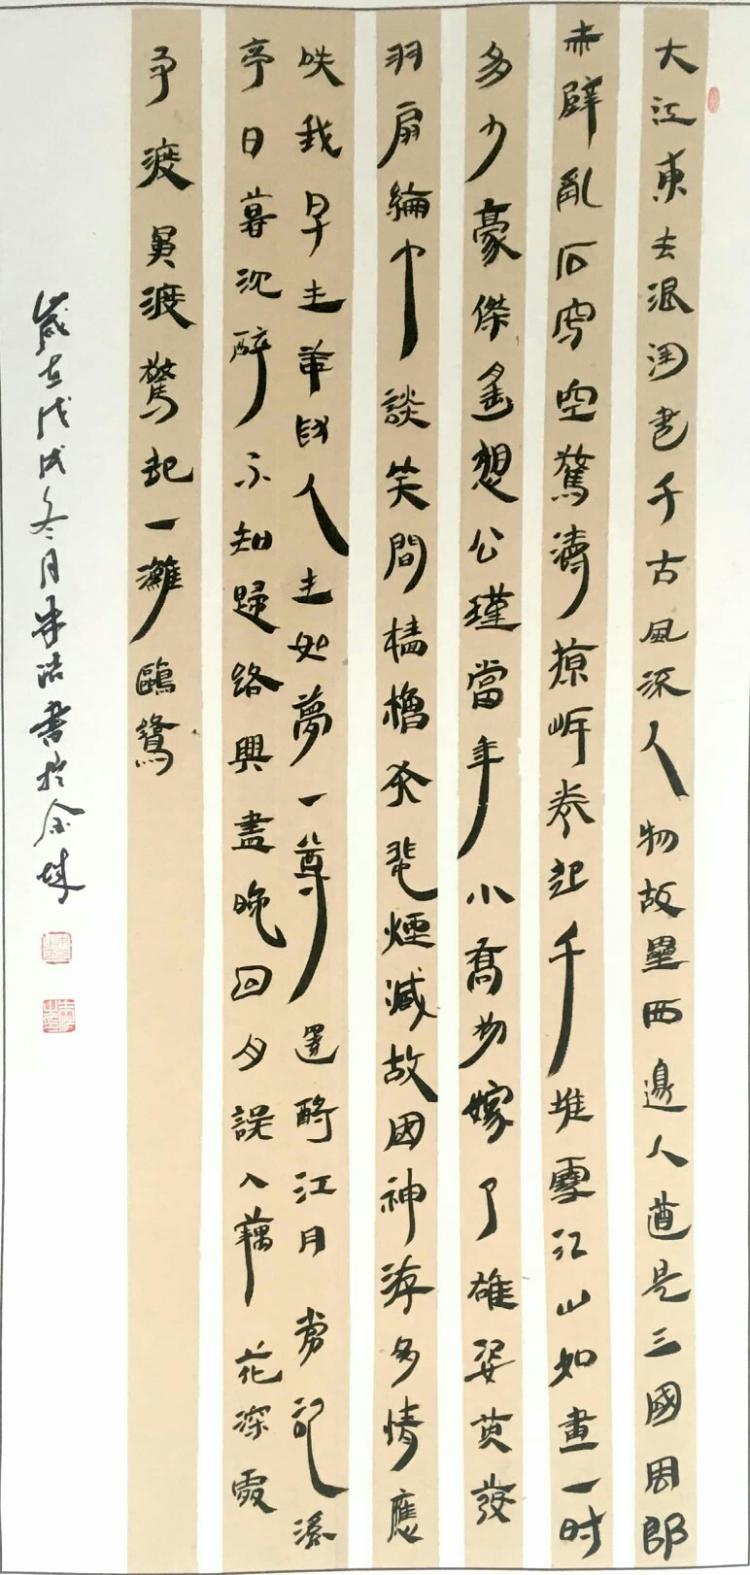 大江東去浪淘盡千古風流人物故壘西邊人道是三國周郎
赤壁亂石穿空驚濤掠岸卷起千堆雪江山如畫一时
多少豪傑遙想公瑾當年小喬初嫁了雄姿英發
羽扇綸巾談笑間檣櫓灰飛煙滅故國神游多情應
咲我早生華髮人生如夢一尊還酹江月 常記溪
亭日暮沉醉不知歸路興盡晚回舟誤入藕花深處
爭渡爭渡驚起一灘鷗鷺
歲在戊戌冬月書於金城